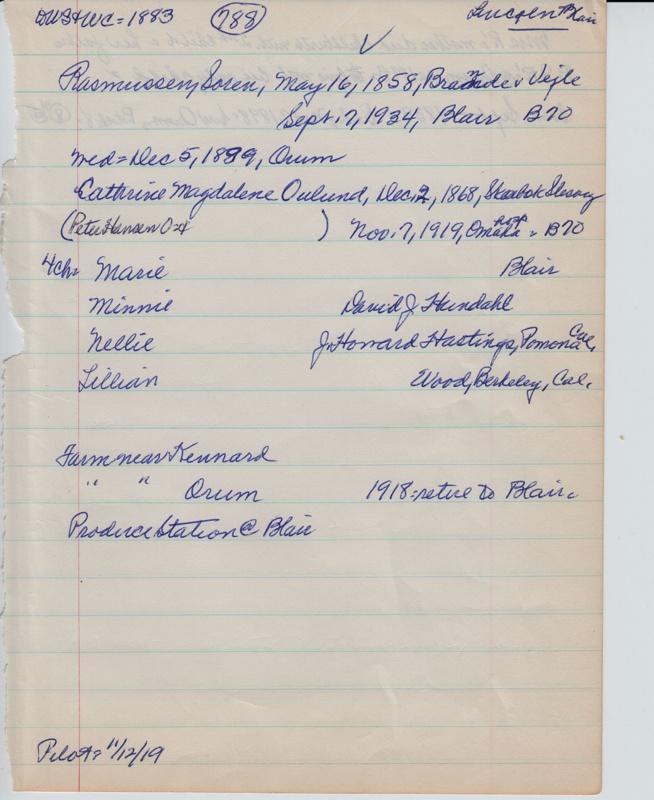 DWS & WC = 1883 (788) Lincoln + Blair
✓
Rasmussen, Soren, May 16, 1858, v Vejle
Sept. 7, 1934, Blair B70
Wed = Dec 5, 1889, Orum
Cathrine Magdalene Oulund, Dec. 2, 1868,
(Peter Hansen O = ) Nov. 7, 1919, Omaha hosp = B70
4 ch = Marie Blair
Minnie David J. Hundahl
Nellie J. Howard Hastings, Pomona Cal.
Lillian Wood, Berkeley, Cal.
Farm near Kennard
" " Orum 1918 = retire to Blair.
Produce Station @ Blair
Pilot = 11/12/19